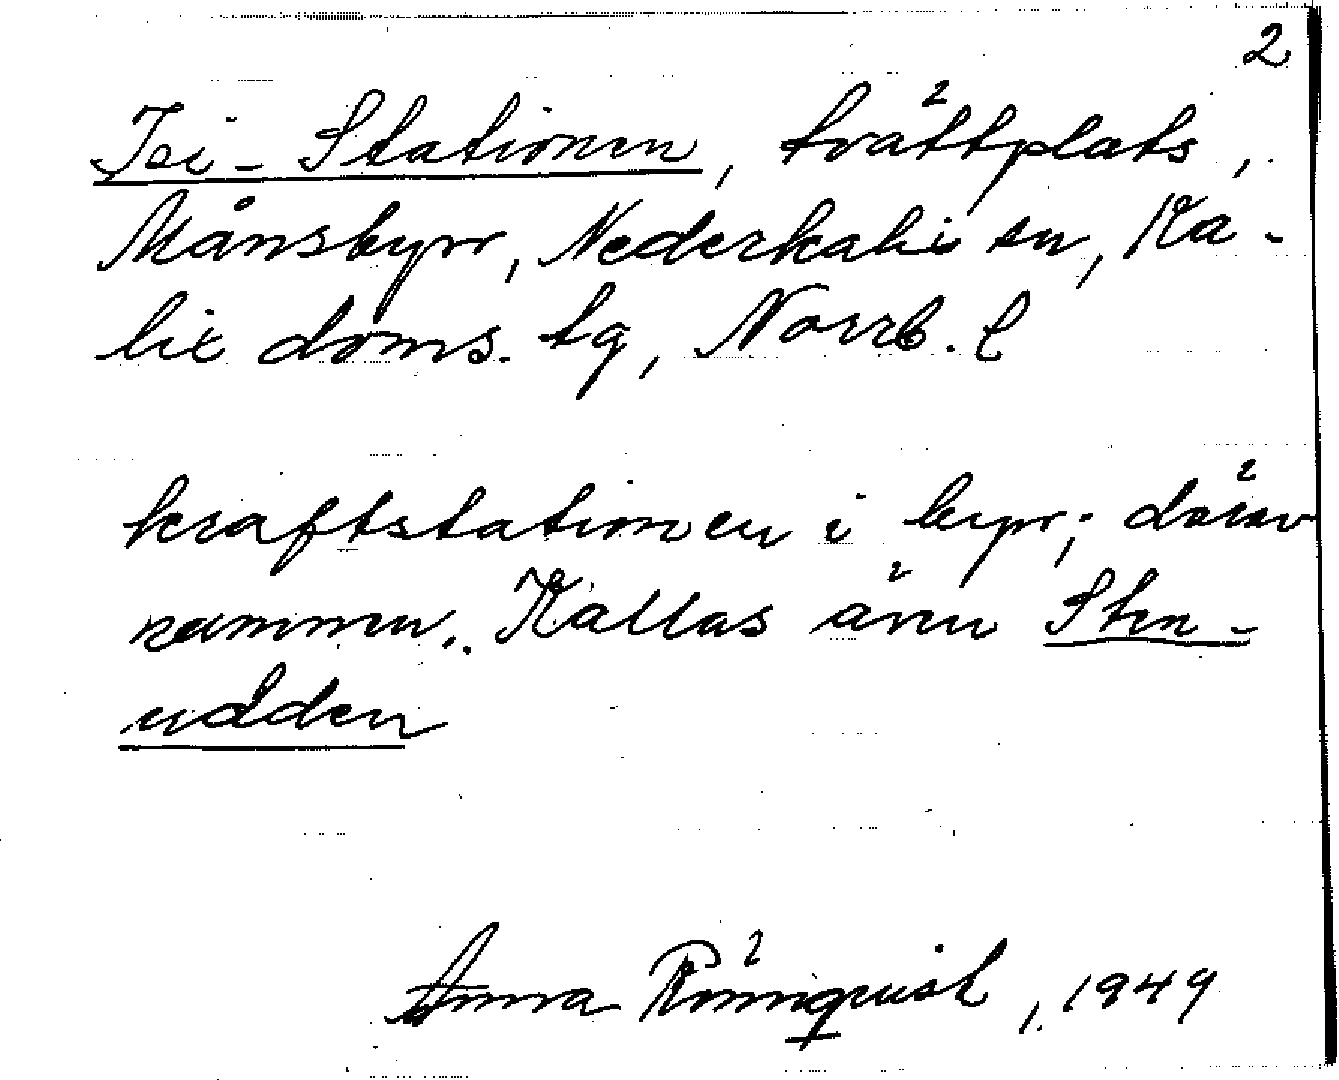 2
Isi-Stationen, tvättplats,
Månsbyn, Nederkalix sn, Ka-
lix doms. tg, Norrb. l
kraftstationen i byn; därav
namnen. Kallas även Sten-
udden
Anna Rönnquist, 1949